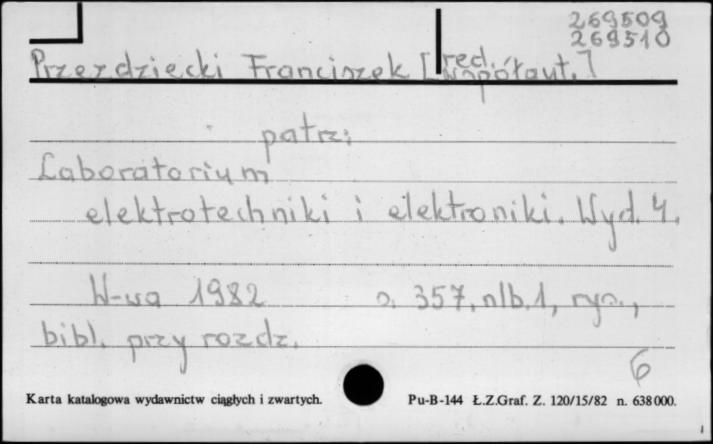 269509
269510
Przeździecki Franciszek [red.
współaut.]
patrz:
Laboratorium
elektrotechniki i elektroniki. Wyd. 4.
W-wa 1982 s. 357, nlb. 1, rys.,
bibl. przy rozdz.
6
Karta katalogowa wydawnictw ciągłych i zwartych. Pu-B-144 Ł.Z.Graf. Z. 120/15/82 n. 638 000.